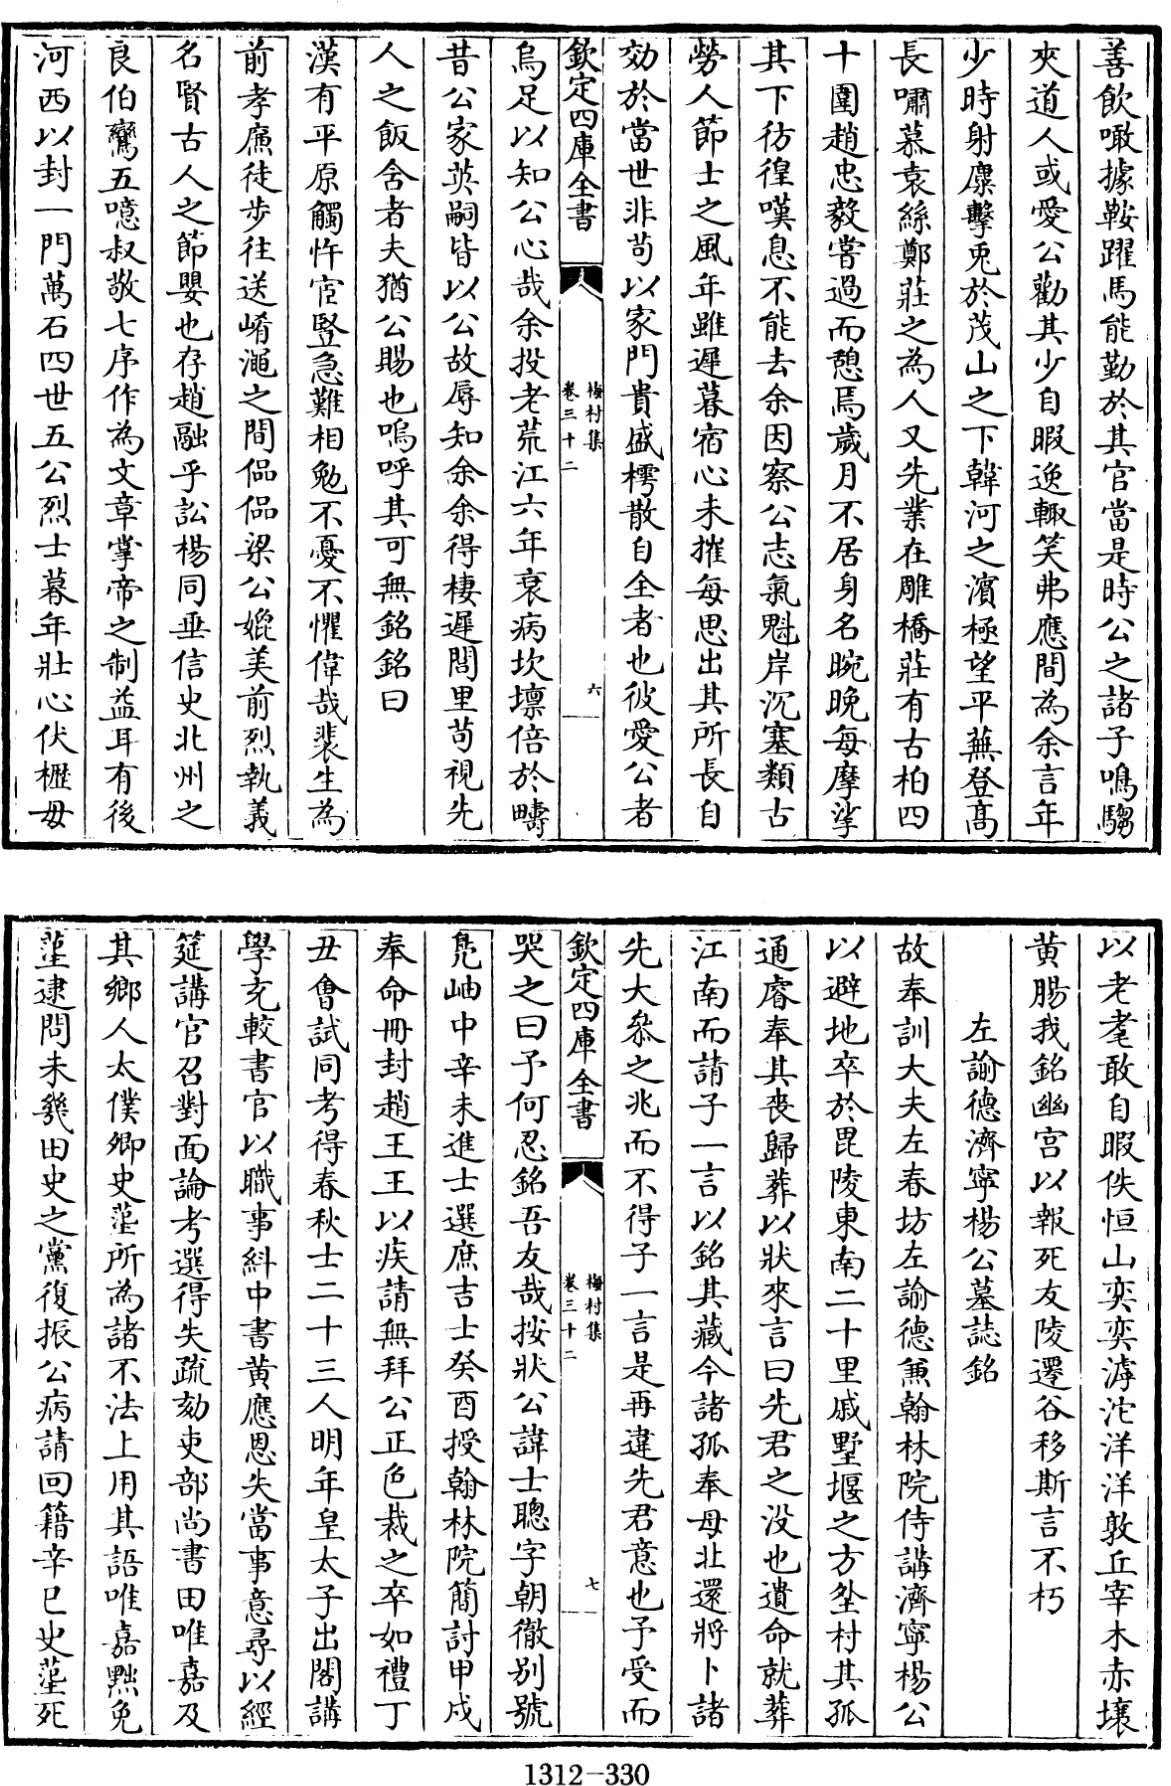 善飲噉據鞍躍馬能勤於其官當是時公之諸子鳴騶
夾道人或愛公勸其少自暇逸輙笑弗應間為余言年
少時射麋擊兎於茂山之下韓河之濱極望平蕪登髙
長嘯慕袁絲鄭莊之為人又先業在雕橋莊有古柏四
十圍趙忠毅嘗過而憩焉歲月不居身名晼晚每摩挲
其下彷徨嘆息不能去余因察公志氣魁岸沉塞類古
勞人節士之風年雖遲暮宿心未摧每思出其所長自
効於當世非茍以家門貴盛樗散自全者也彼愛公者
欽定四庫全書
梅村集
卷三十二
六
烏足以知公心哉余投老荒江六年衰病坎壈倍於疇
昔公家英嗣皆以公故辱知余余得棲遲閭里茍視先
人之飯含者夫猶公賜也嗚呼其可無銘銘曰
漢有平原觸忤宦豎急難相勉不憂不懼偉哉裴生為
前孝㢘徒步往送崤澠之間偘偘梁公媲美前烈執義
名賢古人之節嬰也存趙融乎訟楊同垂信史北州之
良伯鸞五噫叔敬七序作為文章掌帝之制益耳有後
河西以封一門萬石四世五公烈士暮年壯心伏櫪毋
以老耄敢自暇佚恒山奕奕滹沱洋洋敦丘宰木赤壤
黄腸我銘幽宫以報死友陵遷谷移斯言不朽
左諭德濟寧楊公墓誌銘
故奉訓大夫左春坊左諭德兼翰林院侍講濟寧楊公
以避地卒於毘陵東南二十里戚墅堰之方坔村其孤
通睿奉其喪歸葬以狀來言曰先君之没也遺命就葬
江南而請子一言以銘其藏今諸孤奉母北還將卜諸
先大叅之兆而不得子一言是再違先君意也予受而
欽定四庫全書
梅村集
卷三十二
七
哭之曰予何忍銘吾友哉按狀公諱士聰字朝徹别號
鳬岫中辛未進士選庶吉士癸酉授翰林院簡討甲戍
奉命冊封趙王王以疾請無拜公正色裁之卒如禮丁
丑會試同考得春秋士二十三人明年皇太子出閣講
學充較書官以職事糾中書黄應恩失當事意尋以經
筵講官召對面論考選得失疏劾吏部尚書田唯嘉及
其鄉人太僕卿史𡐤所為諸不法上用其語唯嘉㸃免
𡐤逮問未㡬田史之黨復振公病請回籍辛巳史𡐤死
1312-330